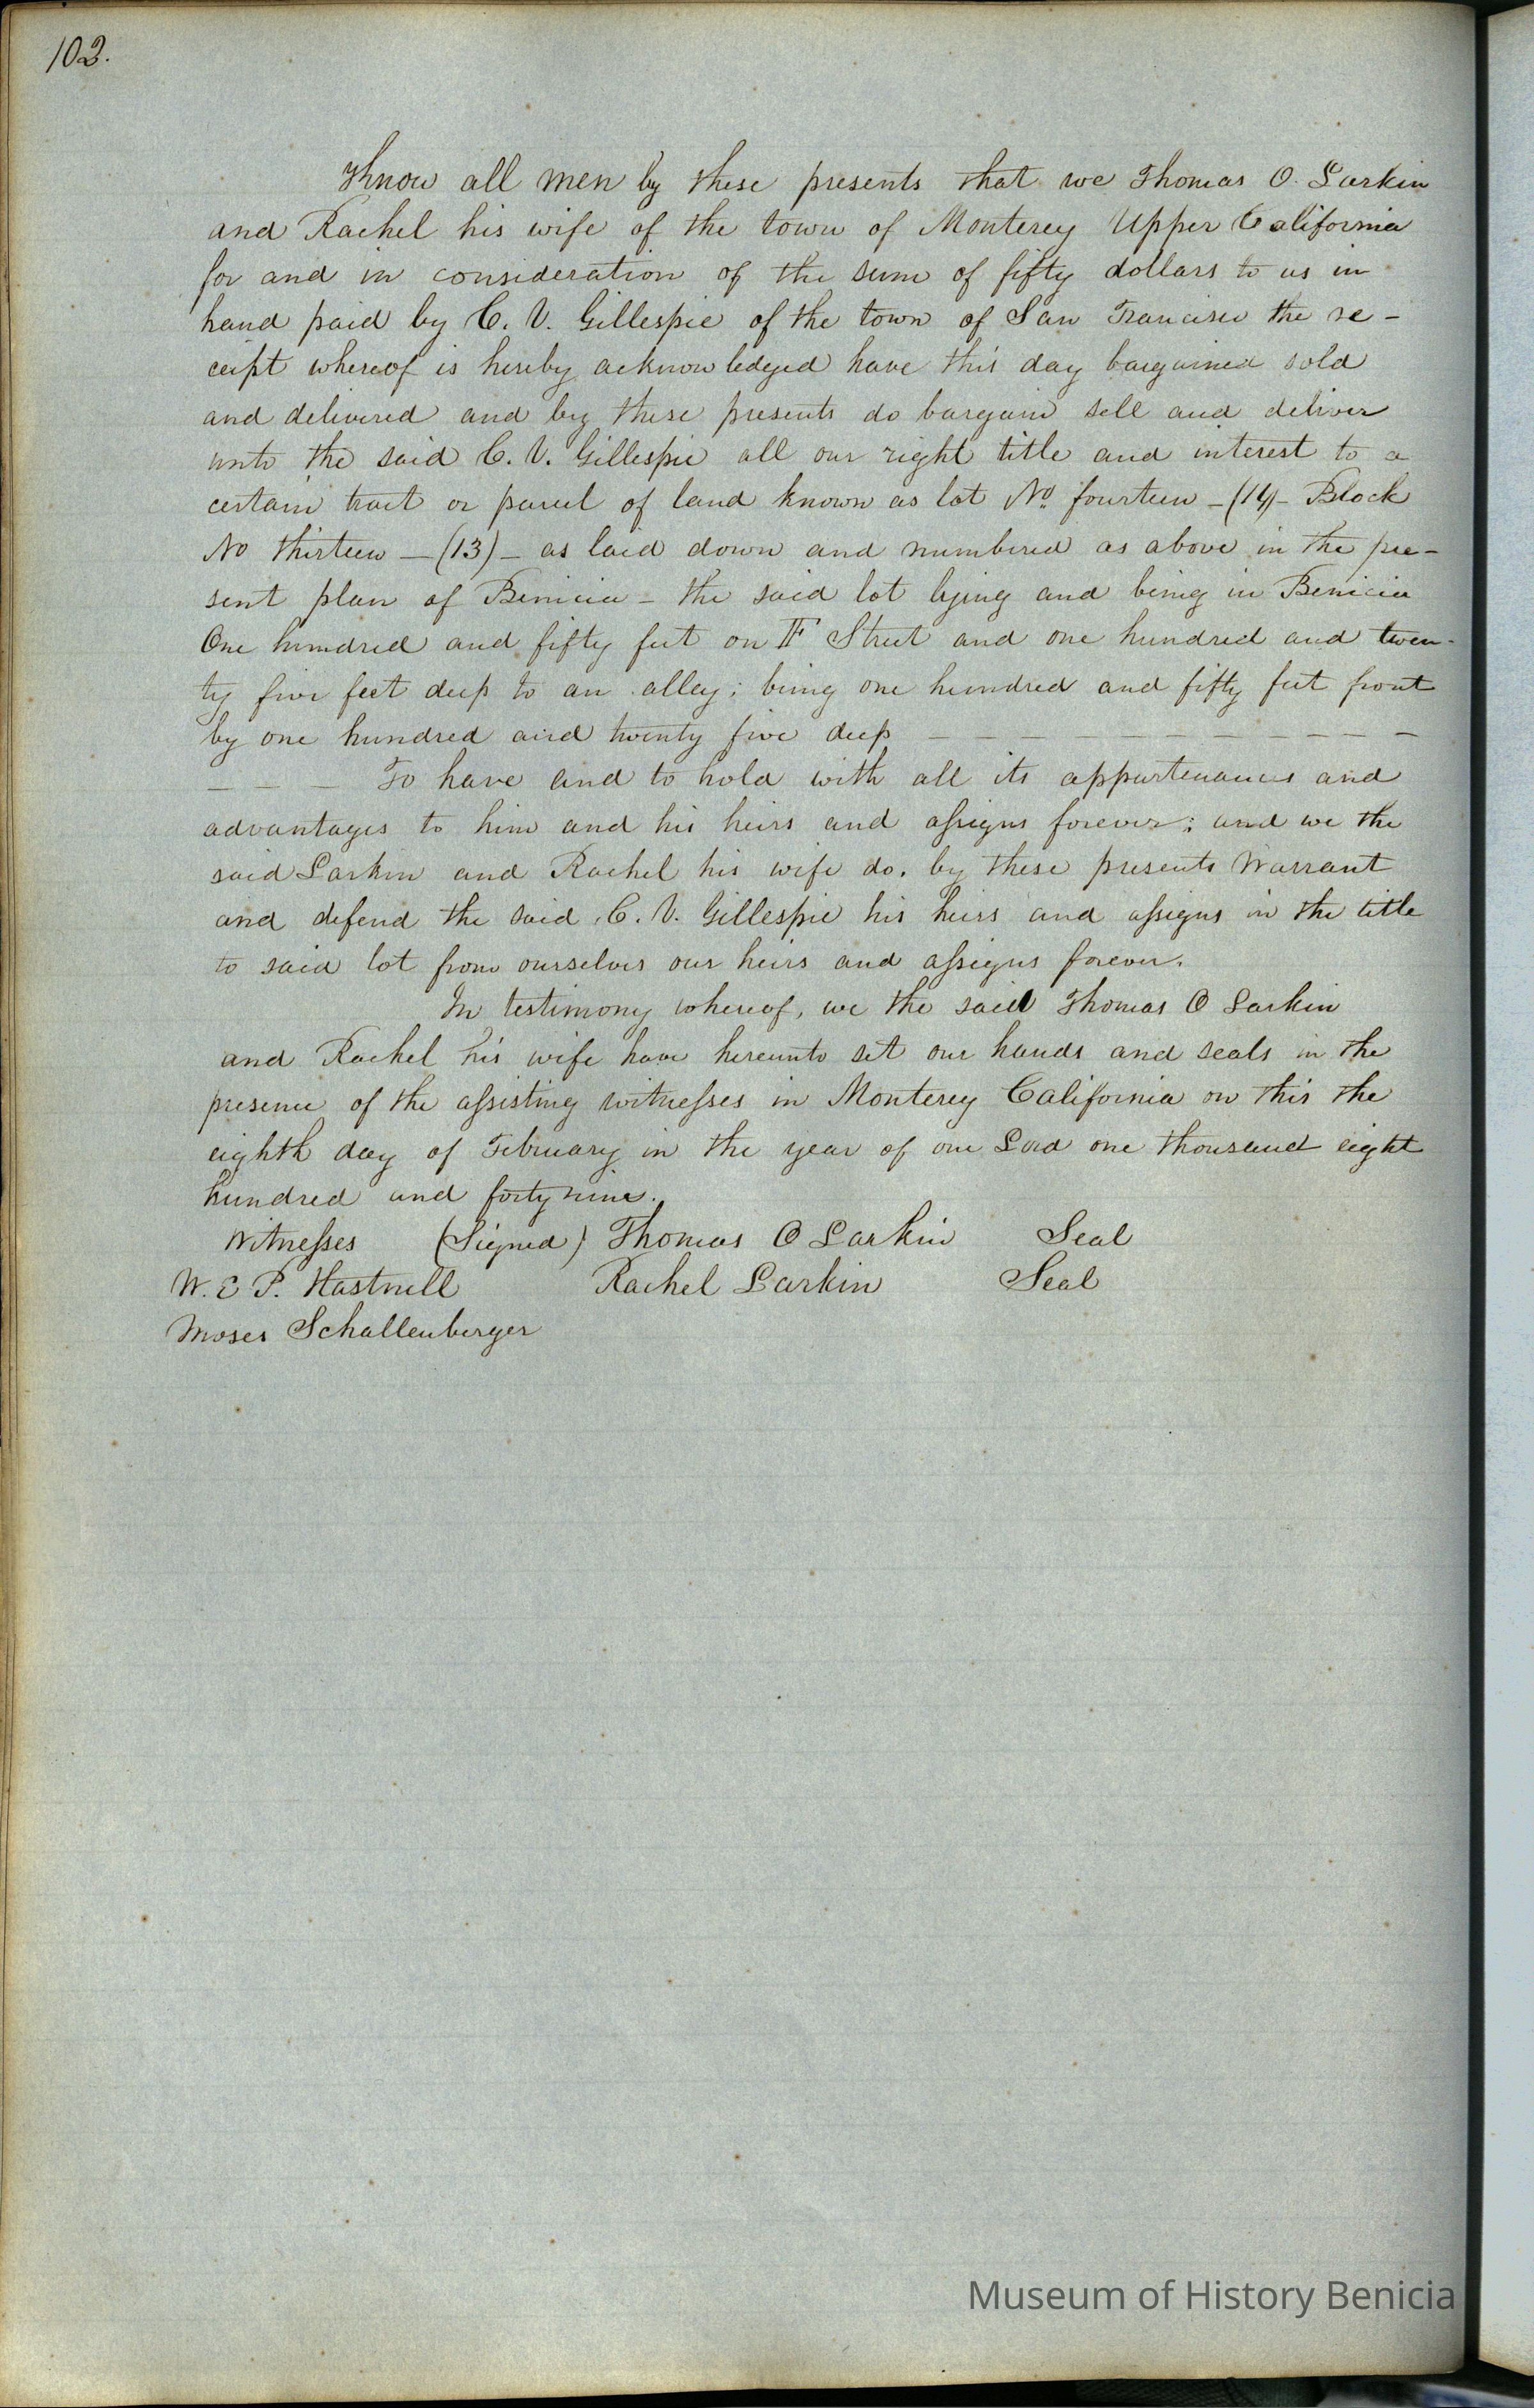 102.
Know all men by these presents that we Thomas O. Larkin
and Rachel his wife of the town of Monterey Upper California
for and in consideration of the sum of fifty dollars to us in
hand paid by C. V. Gillespie of the town of San Francisco the re-
ceipt whereof is hereby acknowledged have this day bargained sold
and delivered and by these presents do bargain sell and deliver
unto the said C. V. Gillespie all our right title and interest to a
certain tract or parcel of land known as lot No. fourteen - (14) - Block
No thirteen - (13) - as laid down and numbered as above in the pre-
sent plan of Benicia - the said lot lying and being in Benicia
One hundred and fifty feet on F Street and one hundred and twen-
ty five feet deep to an alley; being one hundred and fifty feet front
by one hundred and twenty five deep — — — — — — — — — — —
— — — To have and to hold with all its appurtenances and
advantages to him and his heirs and assigns forever; and we the
said Larkin and Rachel his wife do, by these presents Warrant
and defend the said C. V. Gillespie his heirs and assigns in the title
to said lot from ourselves our heirs and assigns forever.
In testimony whereof, we the said Thomas O Larkin
and Rachel his wife have hereunto set our hands and seals in the
presence of the assisting witnesses in Monterey California on this the
eighth day of February in the year of our Lord one thousand eight
hundred and forty nine.
Witnesses (Signed) Thomas O Larkin Seal
W. E P. Hastnell Rachel Larkin Seal
Moses Schallenberger
Museum of History Benicia